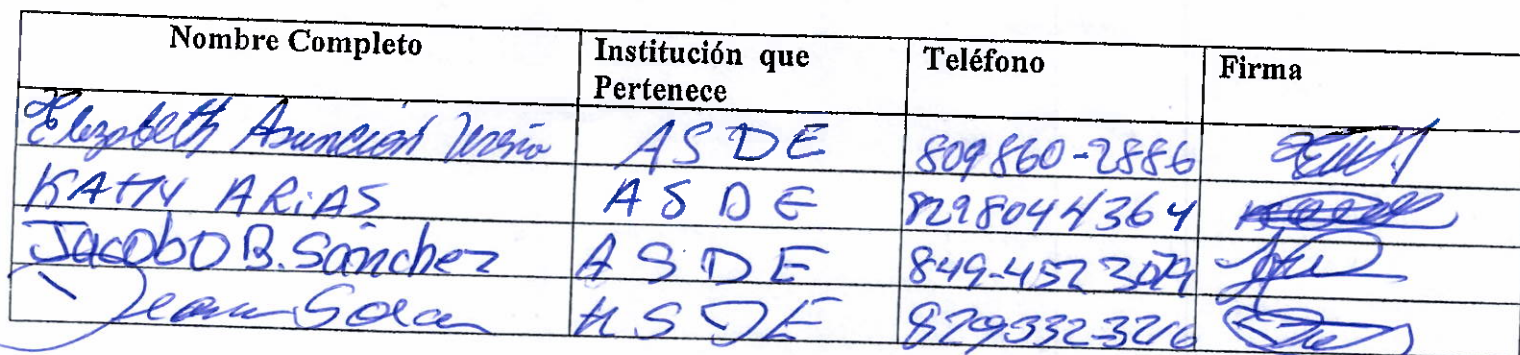 Nombre Completo Institución que Pertenece Teléfono Firma
Elizabeth Asunción ASDE 809 860-2886
KATTY ARiAS ASDE 829 804 4364
Jacobo B. Sánchez ASDE 849-452 3079
Jean ASDE 829332-3216